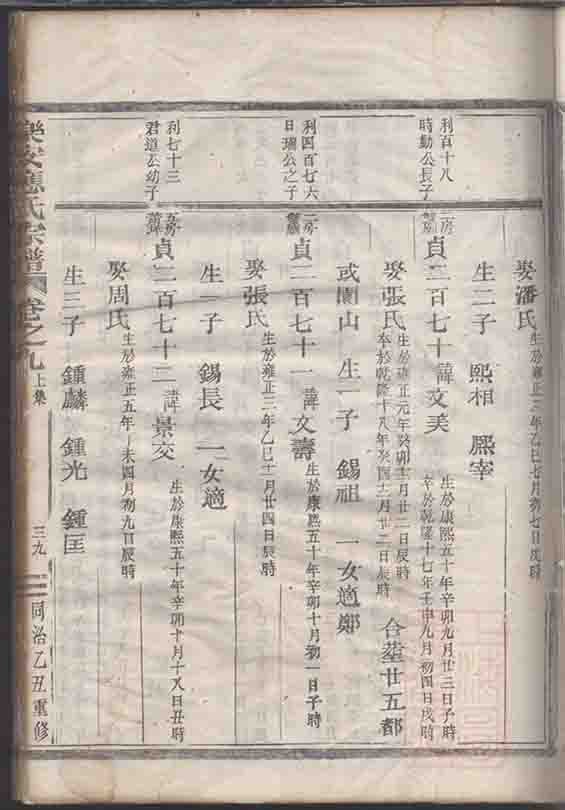 娶潘氏 生於雍正三年乙巳七月初七日戌時
生二子 熙相 熙宰
利百十八 時勳公長子
二房
貞二百七十 諱文美 生於康熙五十年辛卯九月廿三日子時 卒於乾隆十七年壬申九月初四日戌時
娶張氏 生於雍正元年癸卯十一月廿二日辰時 卒於乾隆十八年癸酉二月廿二日辰時 合塟廿五都
或闌山 生一子 錫祖 一女適鄭
利四百七六 日瑞公之子
二房
貞二百七十一 諱文壽 生於康熙五十年辛卯十月初一日子時
娶張氏 生於雍正三年乙巳十一月廿四日辰時
生一子 錫長 一女適
利七十三 君道公幼子
五房
貞二百七十二 諱景交 生於康熙五十年辛卯十月十八日丑時
娶周氏 生於雍正五年丁未四月初九日辰時
生三子 鍾麟 鍾光 鍾匡
樂安應氏宗譜 卷之九 上集 三九 同治乙丑重修